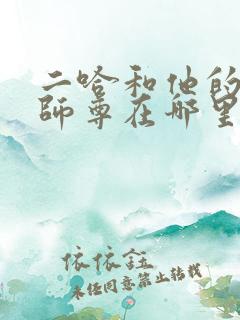 二哈和他的
師尊在哪里
依依鈺
未经同意禁止转载